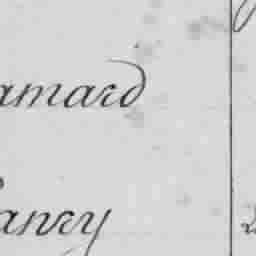 amard
anry